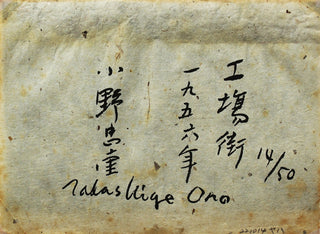 工場街
14/50
一九五六年
小野忠重
Tadashige Ono